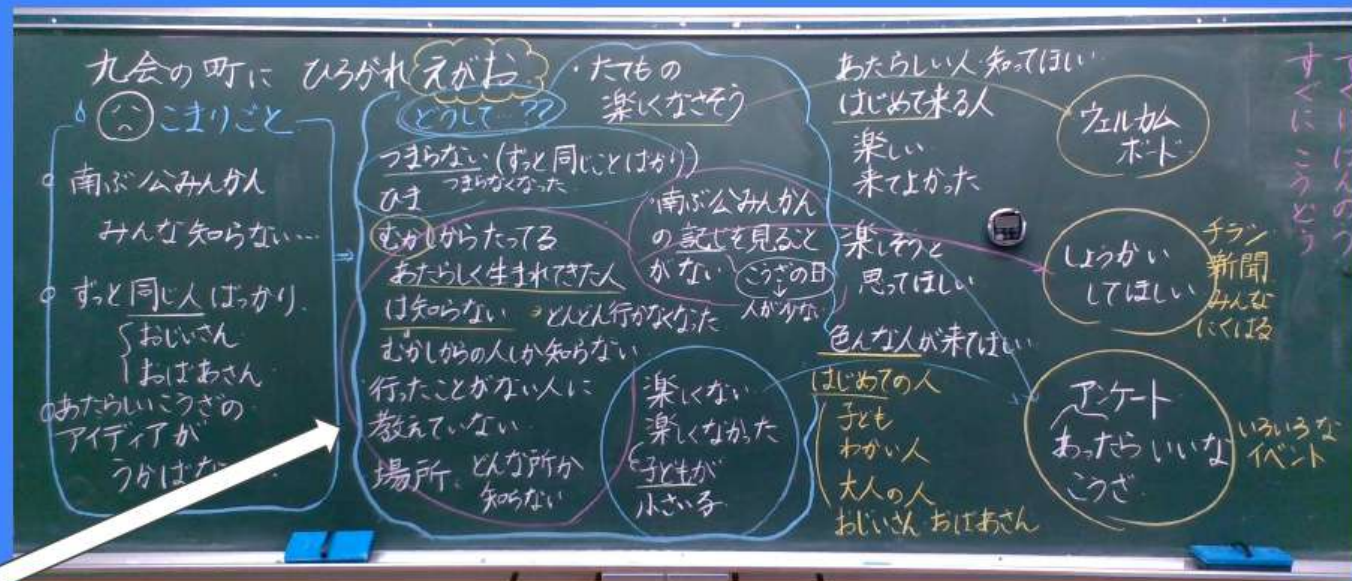 九会の町に ひろがれ えがお
こまりごと
南ぶ公みんかん
みんな知らない…
ずっと同じ人ばっかり
おじいさん
おばあさん
あたらしいこうざの
アイディアが
うかばな
どうして…??
・たてもの
楽しくなさそう
つまらない(ずっと同じことばかり)
つまらなくなった
ひま
むかしからたってる
あたらしく生まれてきた人
は知らない
どんどん行かなくなった
むかしからの人しか知らない
行ったことがない人に
教えていない
場所
どんな所か
知らない
・南ぶ公みんかん
の記じを見ること
がない
こうざの日
人が少ない
楽しくない
楽しくなかった
子どもが
小さい子
あたらしい人 知ってほしい
はじめて来る人
楽しい
来てよかった
楽しそうと
思ってほしい
色んな人が来てほしい
はじめての人
子ども
わかい人
大人の人
おじいさん おばあさん
ウェルカム
ボード
しょうかい
してほしい
チラシ
新聞
みんな
にくばる
アンケート
あったらいいな
こうざ
いろいろな
イベント
すぐにこうどう